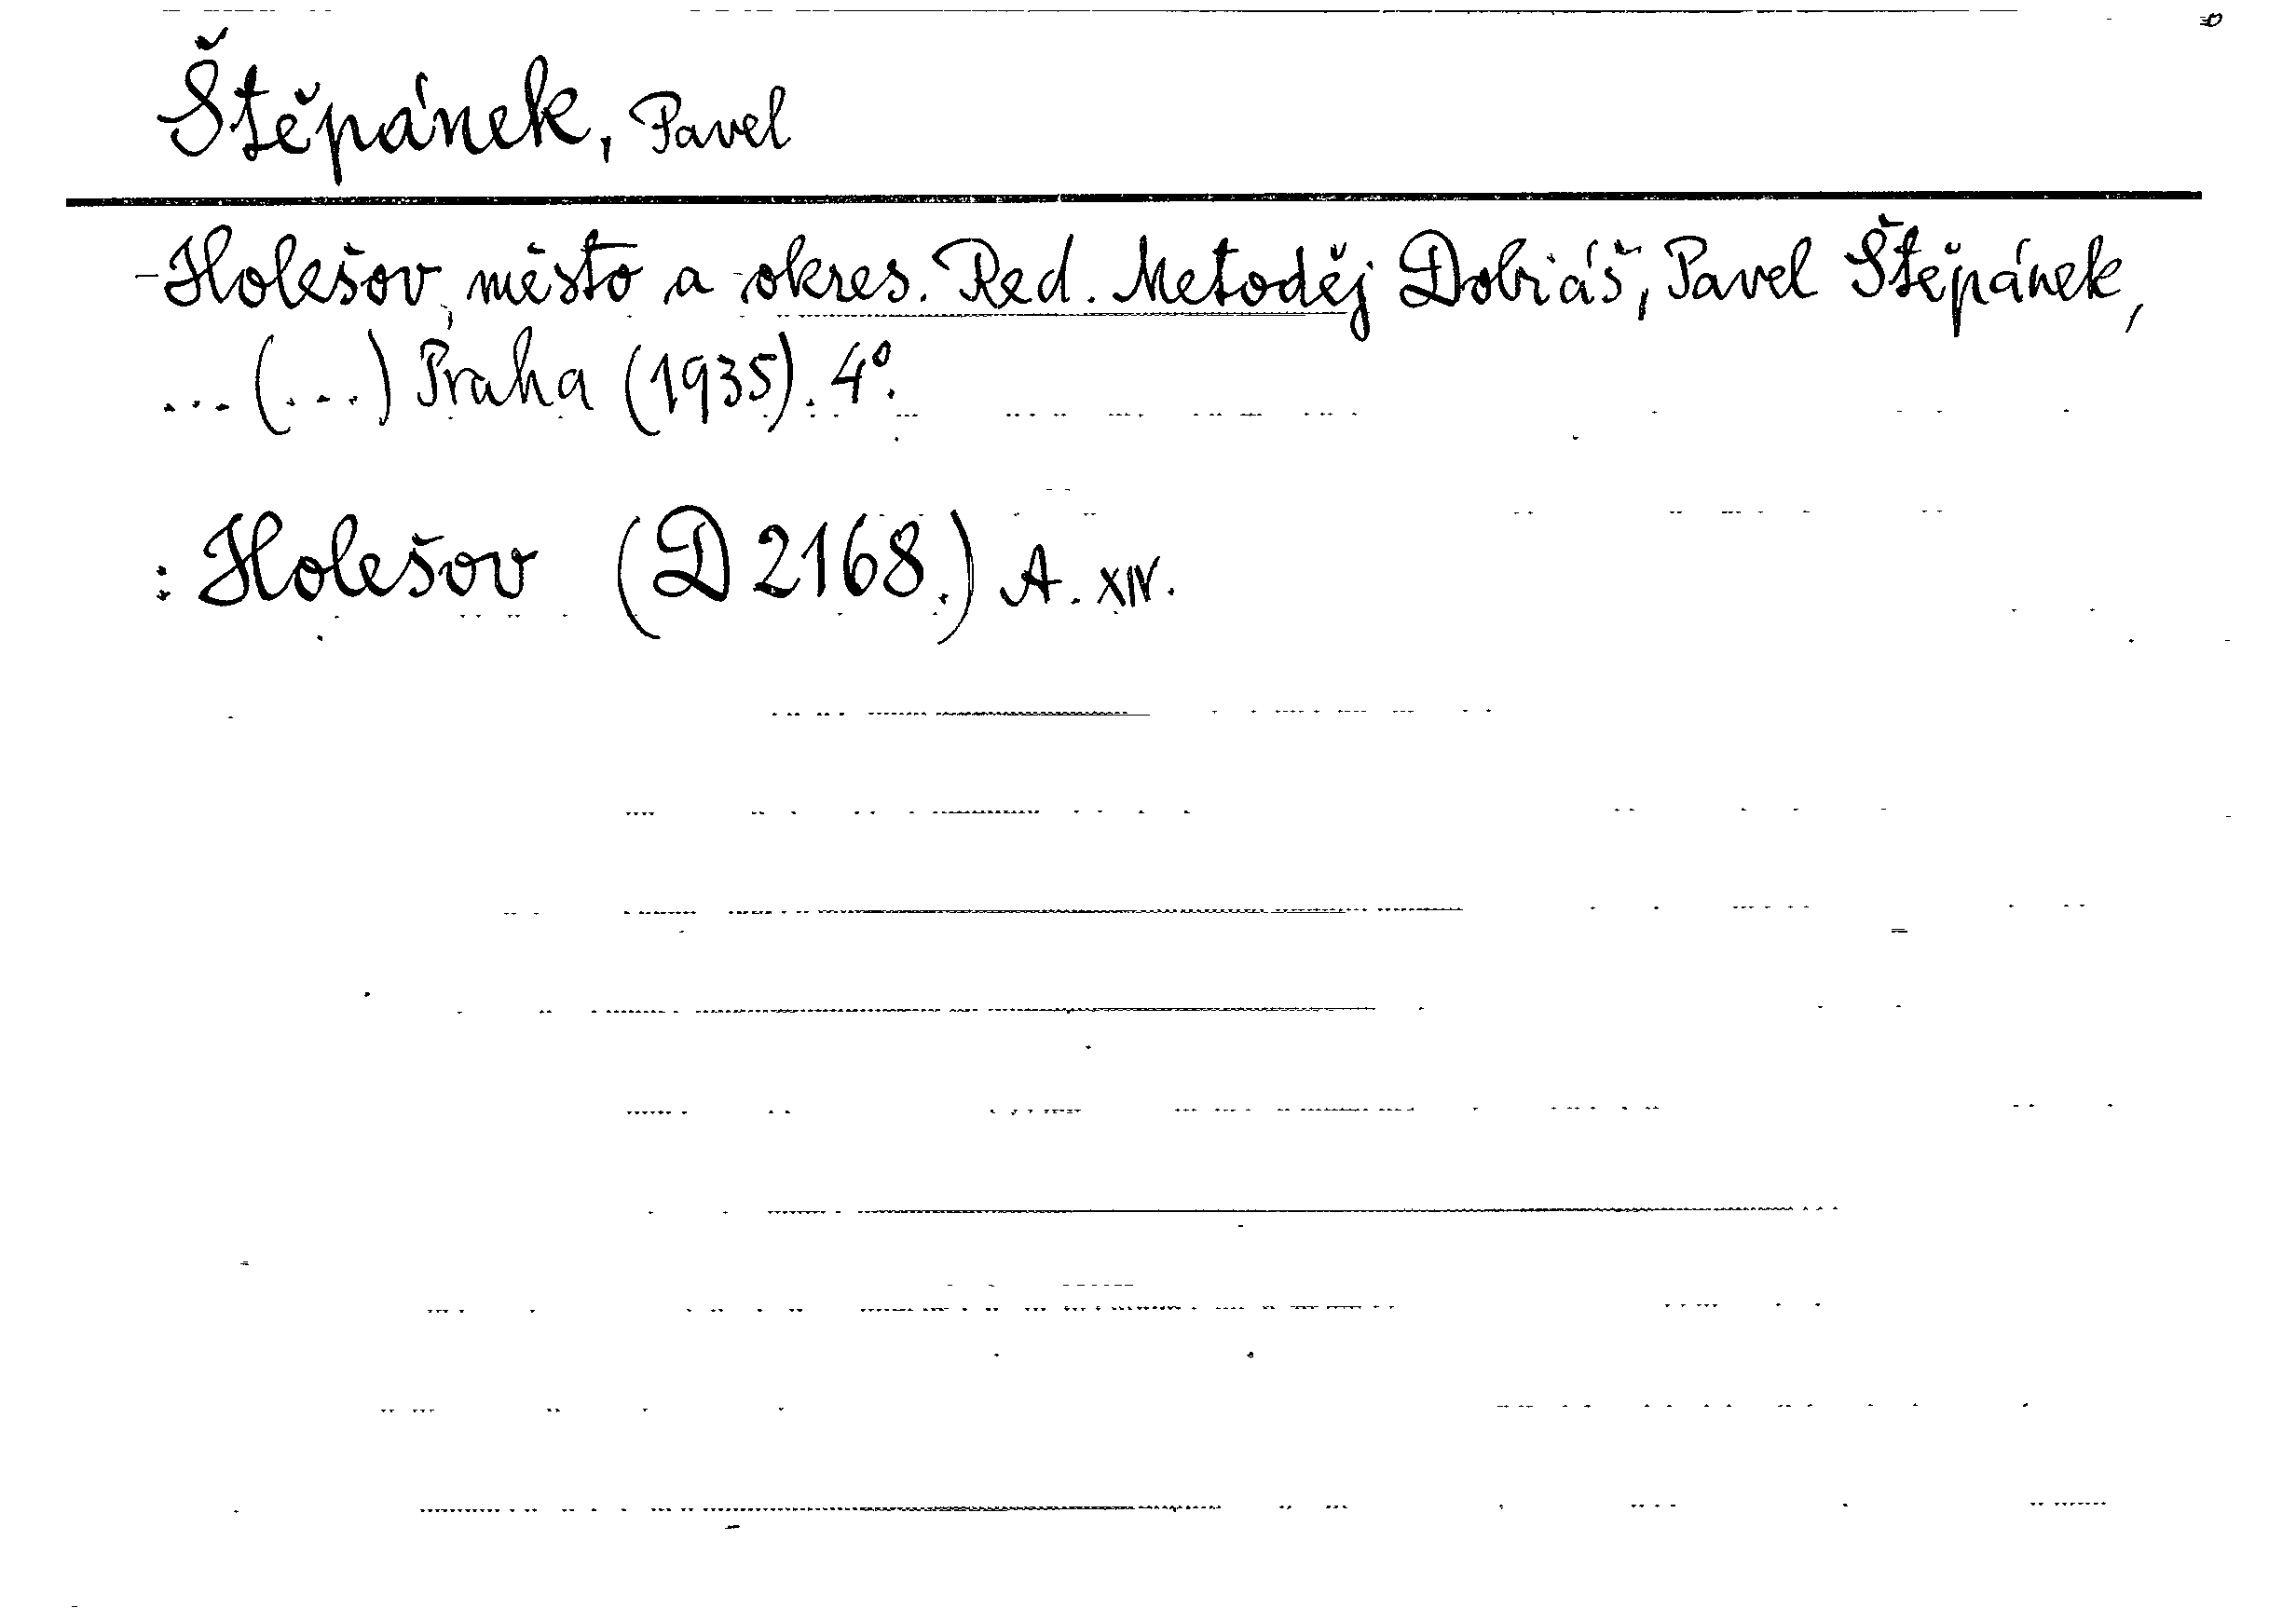 Štěpánek, Pavel
-Holešov, město a okres. Red. Metoděj Dobiáš, Pavel Štěpánek,
... (...) Praha (1935). 4°.
: Holešov (D 2168.) A. XIV.